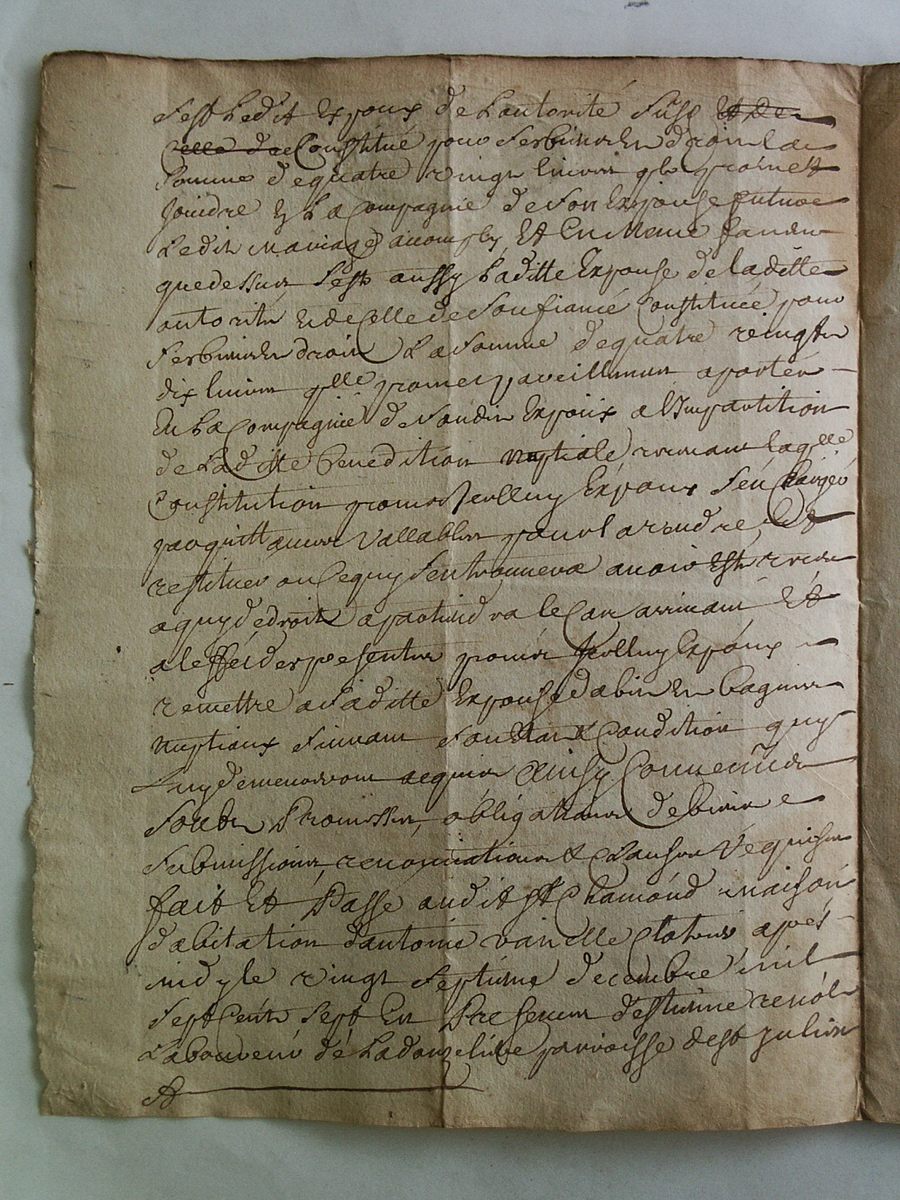 s'est ledit Expoux de L'autorité susd Et De
Celle de Constitué pour ses biens En droit la
somme de quatre vingt livres qle promet
joindre En La Compagnie de son Expouse future
Ledit mariage accomply Et En mesme
que dessus s'est aussy Laditte Expouse de laditte
autorité Et de Celle de son fiancé Constituée pour
ses biens En droit La somme de quatre vingts
dix livres qlle promet pareillement aporter
En La Compagnie de son dit Expoux a L'impartition
de Laditte benediction nuptiale venant laqlle
Constitution Expoux s'en Charger
par quittances Vallables pour la rendre Et
restituer ou Ce quy s'en trouvera avoir Esté receu
a quy de droit apartiendra le Cas arrivant Et
a leffet de presenter Expoux
remettre a saditte Expouse d'abits Et bagues
nuptiaux suivant son Estat & Condition quy
Luy demeureront acquis Ainsy Convenu
soubs Promisses, obligations de biens
submissions, renonciations & Clauses requises
fait Et Passé audit St Chamond maison
d'abitation d'antoine Clotier apres
midy le vingt septieme decembre mil
sept Cents sept En Presence d'estienne
Laboureur de La parroisse de St Julien